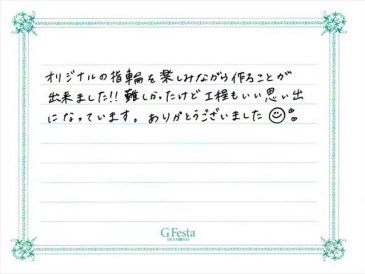 オリジナルの指輪を楽しみながら作ることが
出来ました!! 難しかったけど工程もいい思い出
になっています。ありがとうございました
G.Festa
DIAMOND